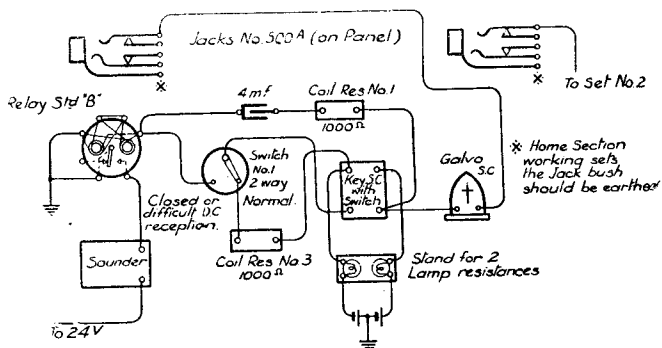 Jacks No. 500A (on Panel)
To Set No.2
Relay Std "B"
4mf
Coil Res No.1
1000Ω
Switch
No.1
2 way
Normal.
Closed or
difficult D.C
reception.
Key SC
with
Switch
Galvo
S.C
※ Home Section
working sets
the Jack bush
should be earthed
Coil Res No 3
1000Ω
Sounder
Stand for 2
Lamp resistances
To 24V